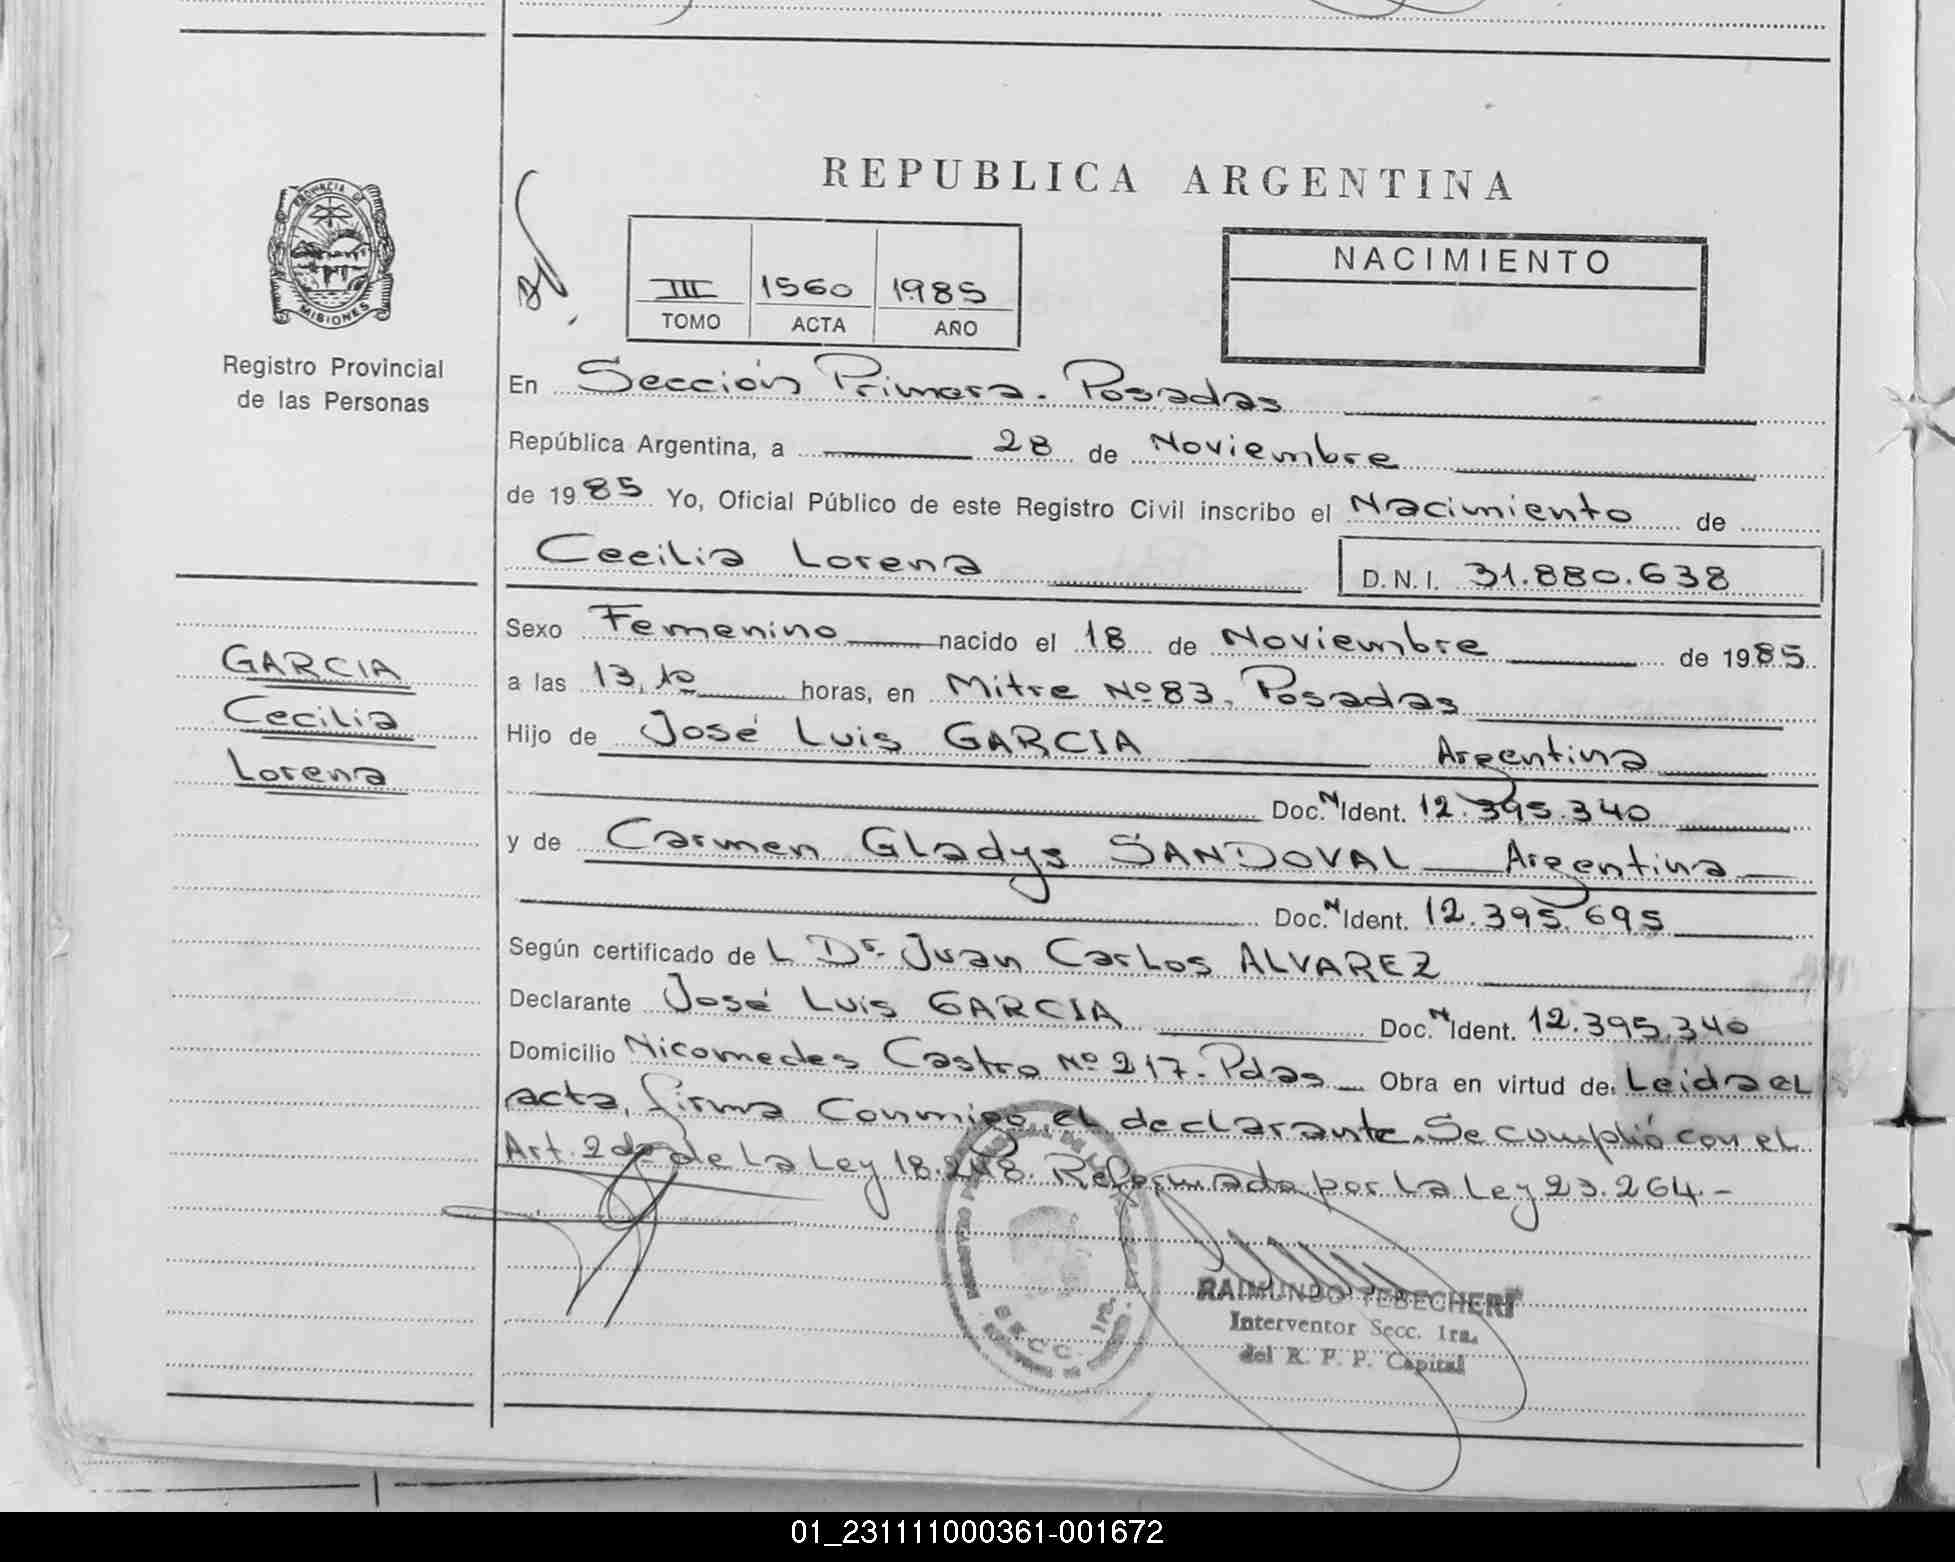 REPUBLICA ARGENTINA
PROVINCIA DE
MISIONES
Registro Provincial
de las Personas
III 1560 1985
TOMO ACTA AÑO
NACIMIENTO
En Sección Primera. Posadas
República Argentina, a 28 de Noviembre
de 1985 Yo, Oficial Público de este Registro Civil inscribo el Nacimiento de
Cecilia Lorena D.N.I. 31.880.638
Sexo Femenino nacido el 18 de Noviembre de 1985
a las 13,10 horas, en Mitre Nº 83, Posadas
Hijo de José Luis GARCIA Argentina
Doc. N Ident. 12.395.340
y de Carmen Gladys SANDOVAL Argentina
Doc. N Ident. 12.395.695
Según certificado de L Dr. Juan Carlos ALVAREZ
Declarante José Luis GARCIA Doc. N Ident. 12.395.340
Domicilio Nicomedes Castro Nº 217. Pdas Obra en virtud de: Leida el
acta, firma conmigo el declarante. Se cumplió con el
Art. 2do de La Ley 18.248. Reformada por La Ley 23.264.-
GARCIA
Cecilia
Lorena
S.R.C.C. 1ra.
RAIMUNDO TEBECHERI
Interventor Secc. 1ra.
del R. P. P. Capital
01_231111000361-001672